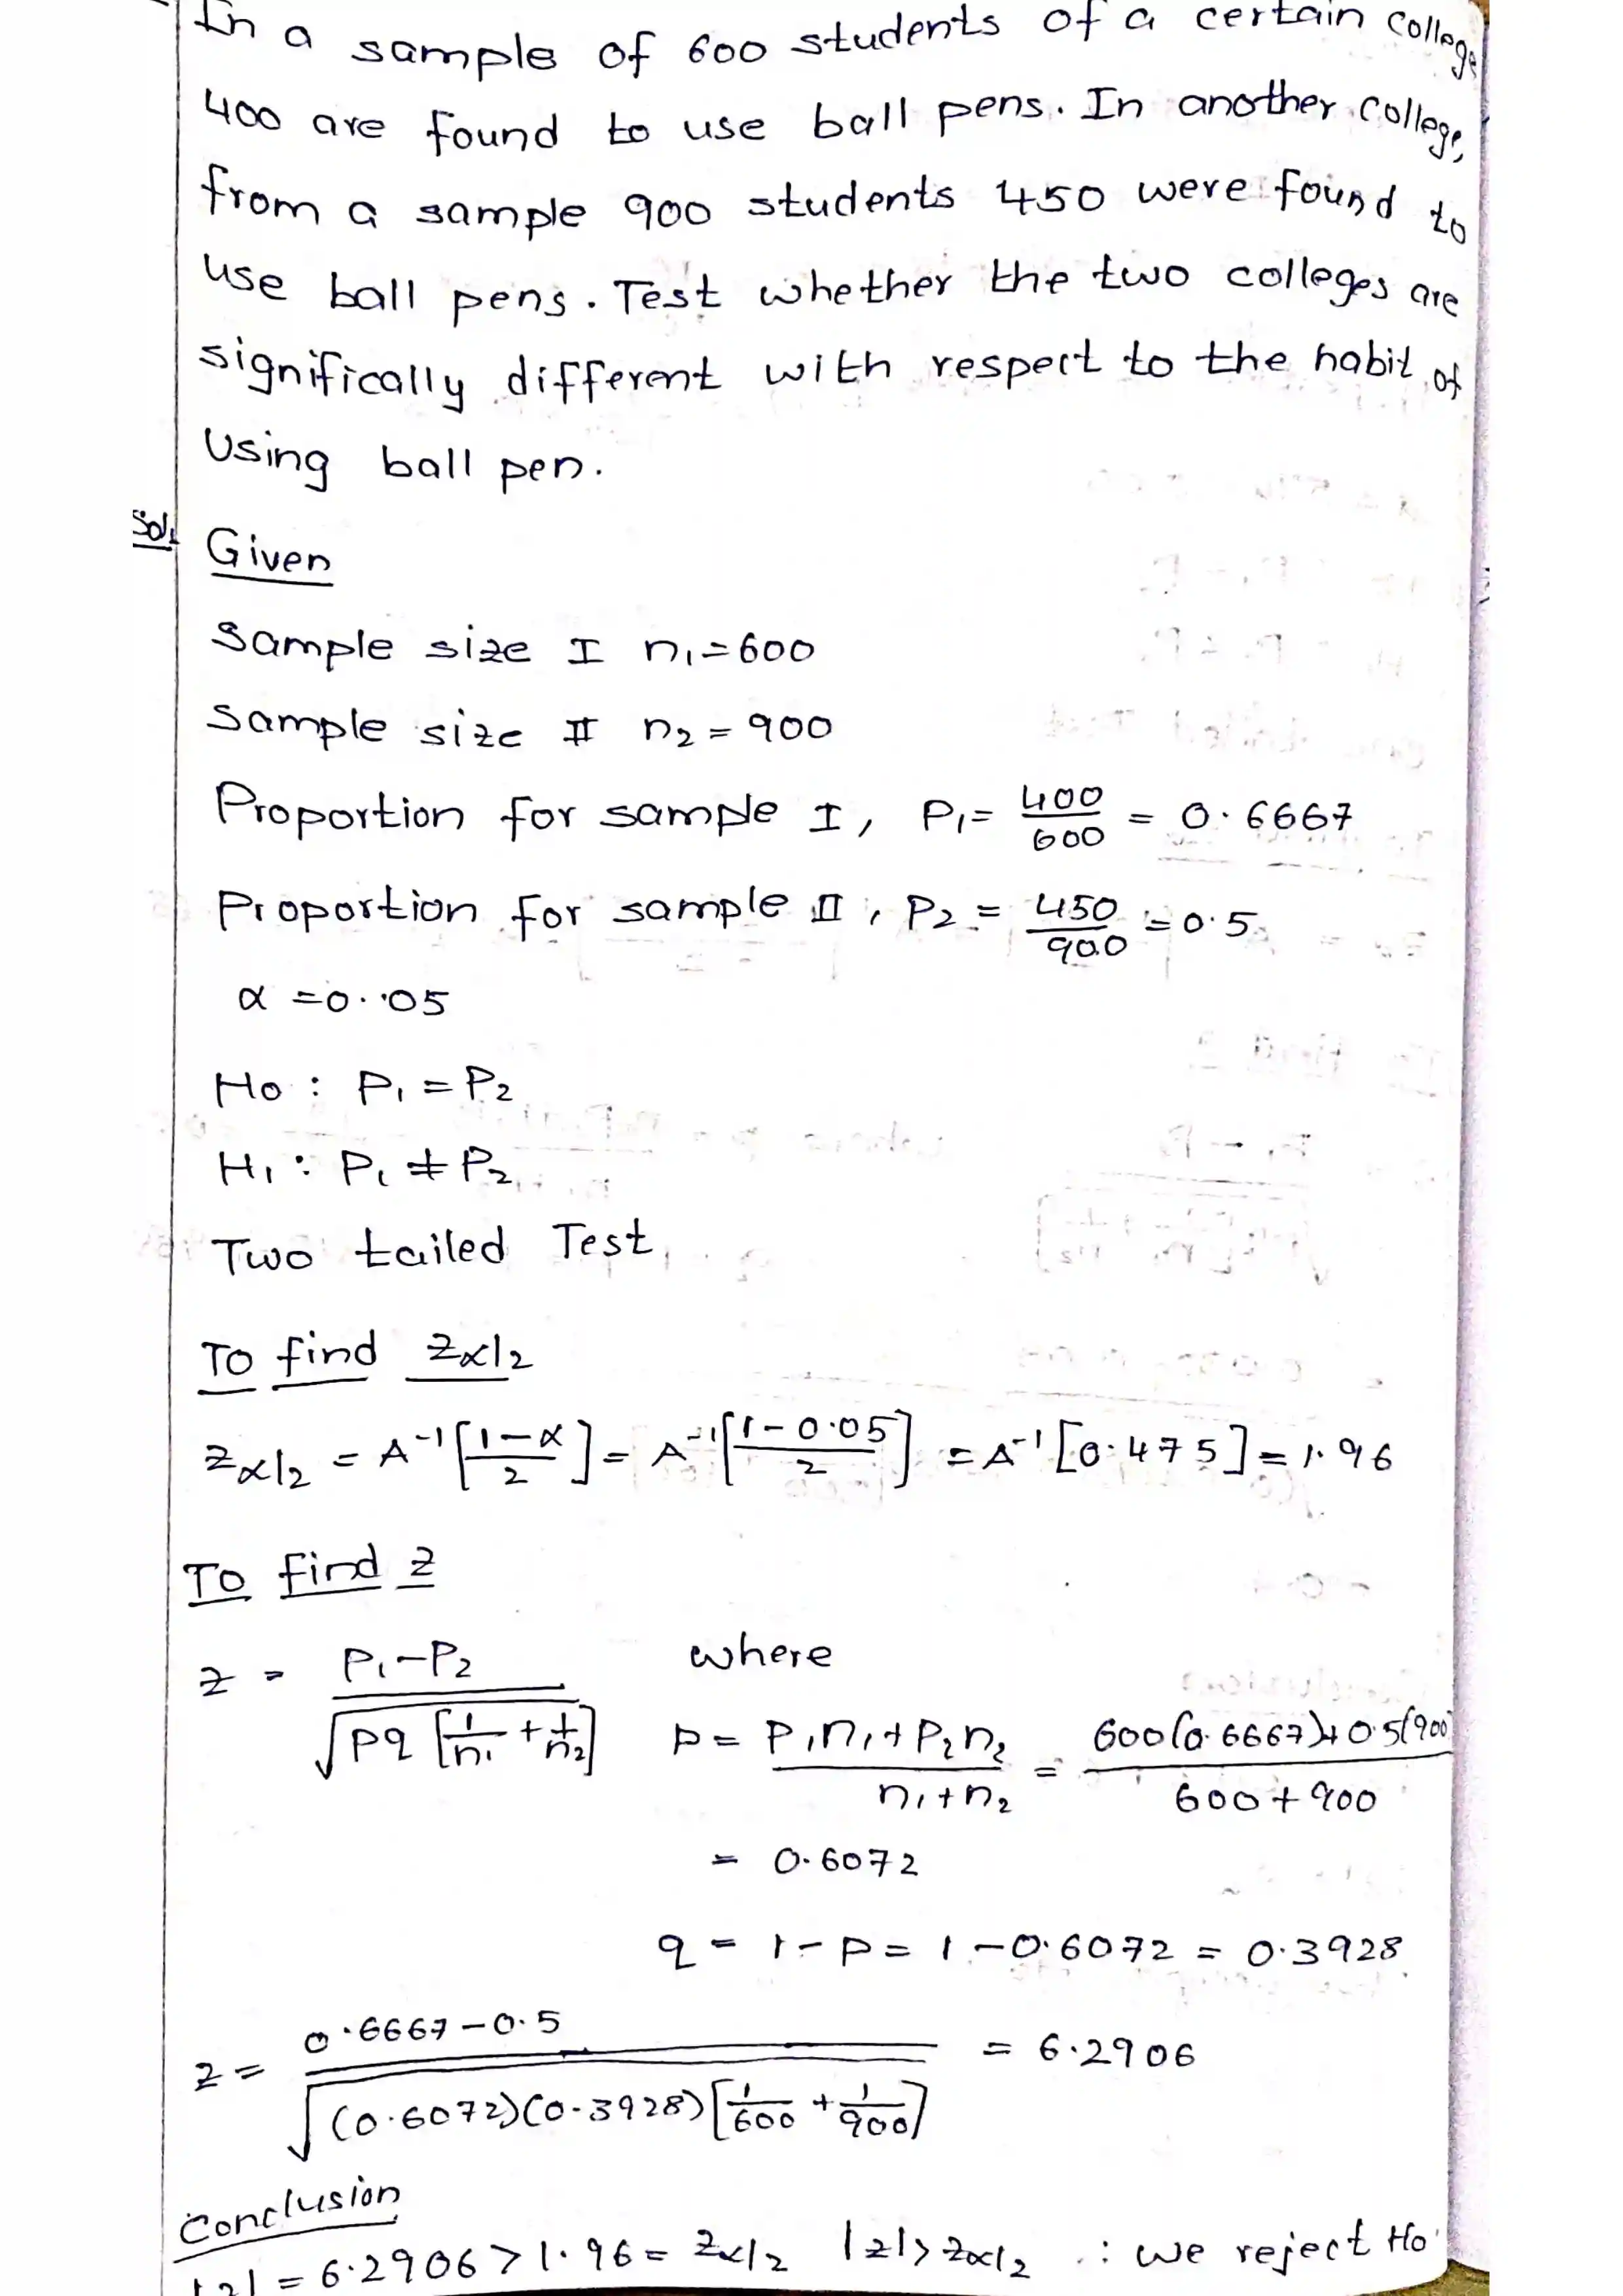 In a sample of 600 students of a certain college
400 are found to use ball pens. In another college,
from a sample 900 students 450 were found to
use ball pens. Test whether the two colleges are
significally different with respect to the habit of
Using ball pen.
Sol. Given
Sample size I n₁=600
Sample size II n₂=900
Proportion for sample I, P₁= 400/600 = 0.6667
Proportion for sample II, P₂= 450/900 = 0.5
α =0.05
H₀ : P₁ = P₂
H₁ : P₁ ≠ P₂
Two tailed Test
To find Zα/2
Zα/2 = A⁻¹[1-α/2] = A⁻¹[1-0.05/2] = A⁻¹[0.475] = 1.96
To find z
z = P₁-P₂/√pq[1/n₁ + 1/n₂] where
p = P₁n₁+P₂n₂/n₁+n₂ = 600(0.6667)+0.5(900)/600+900
= 0.6072
q = 1-p = 1-0.6072 = 0.3928
z = 0.6667-0.5/√(0.6072)(0.3928)[1/600 + 1/900] = 6.2906
Conclusion
|z| = 6.2906 > 1.96 = Zα/2 |z| > Zα/2 ∴ we reject H₀